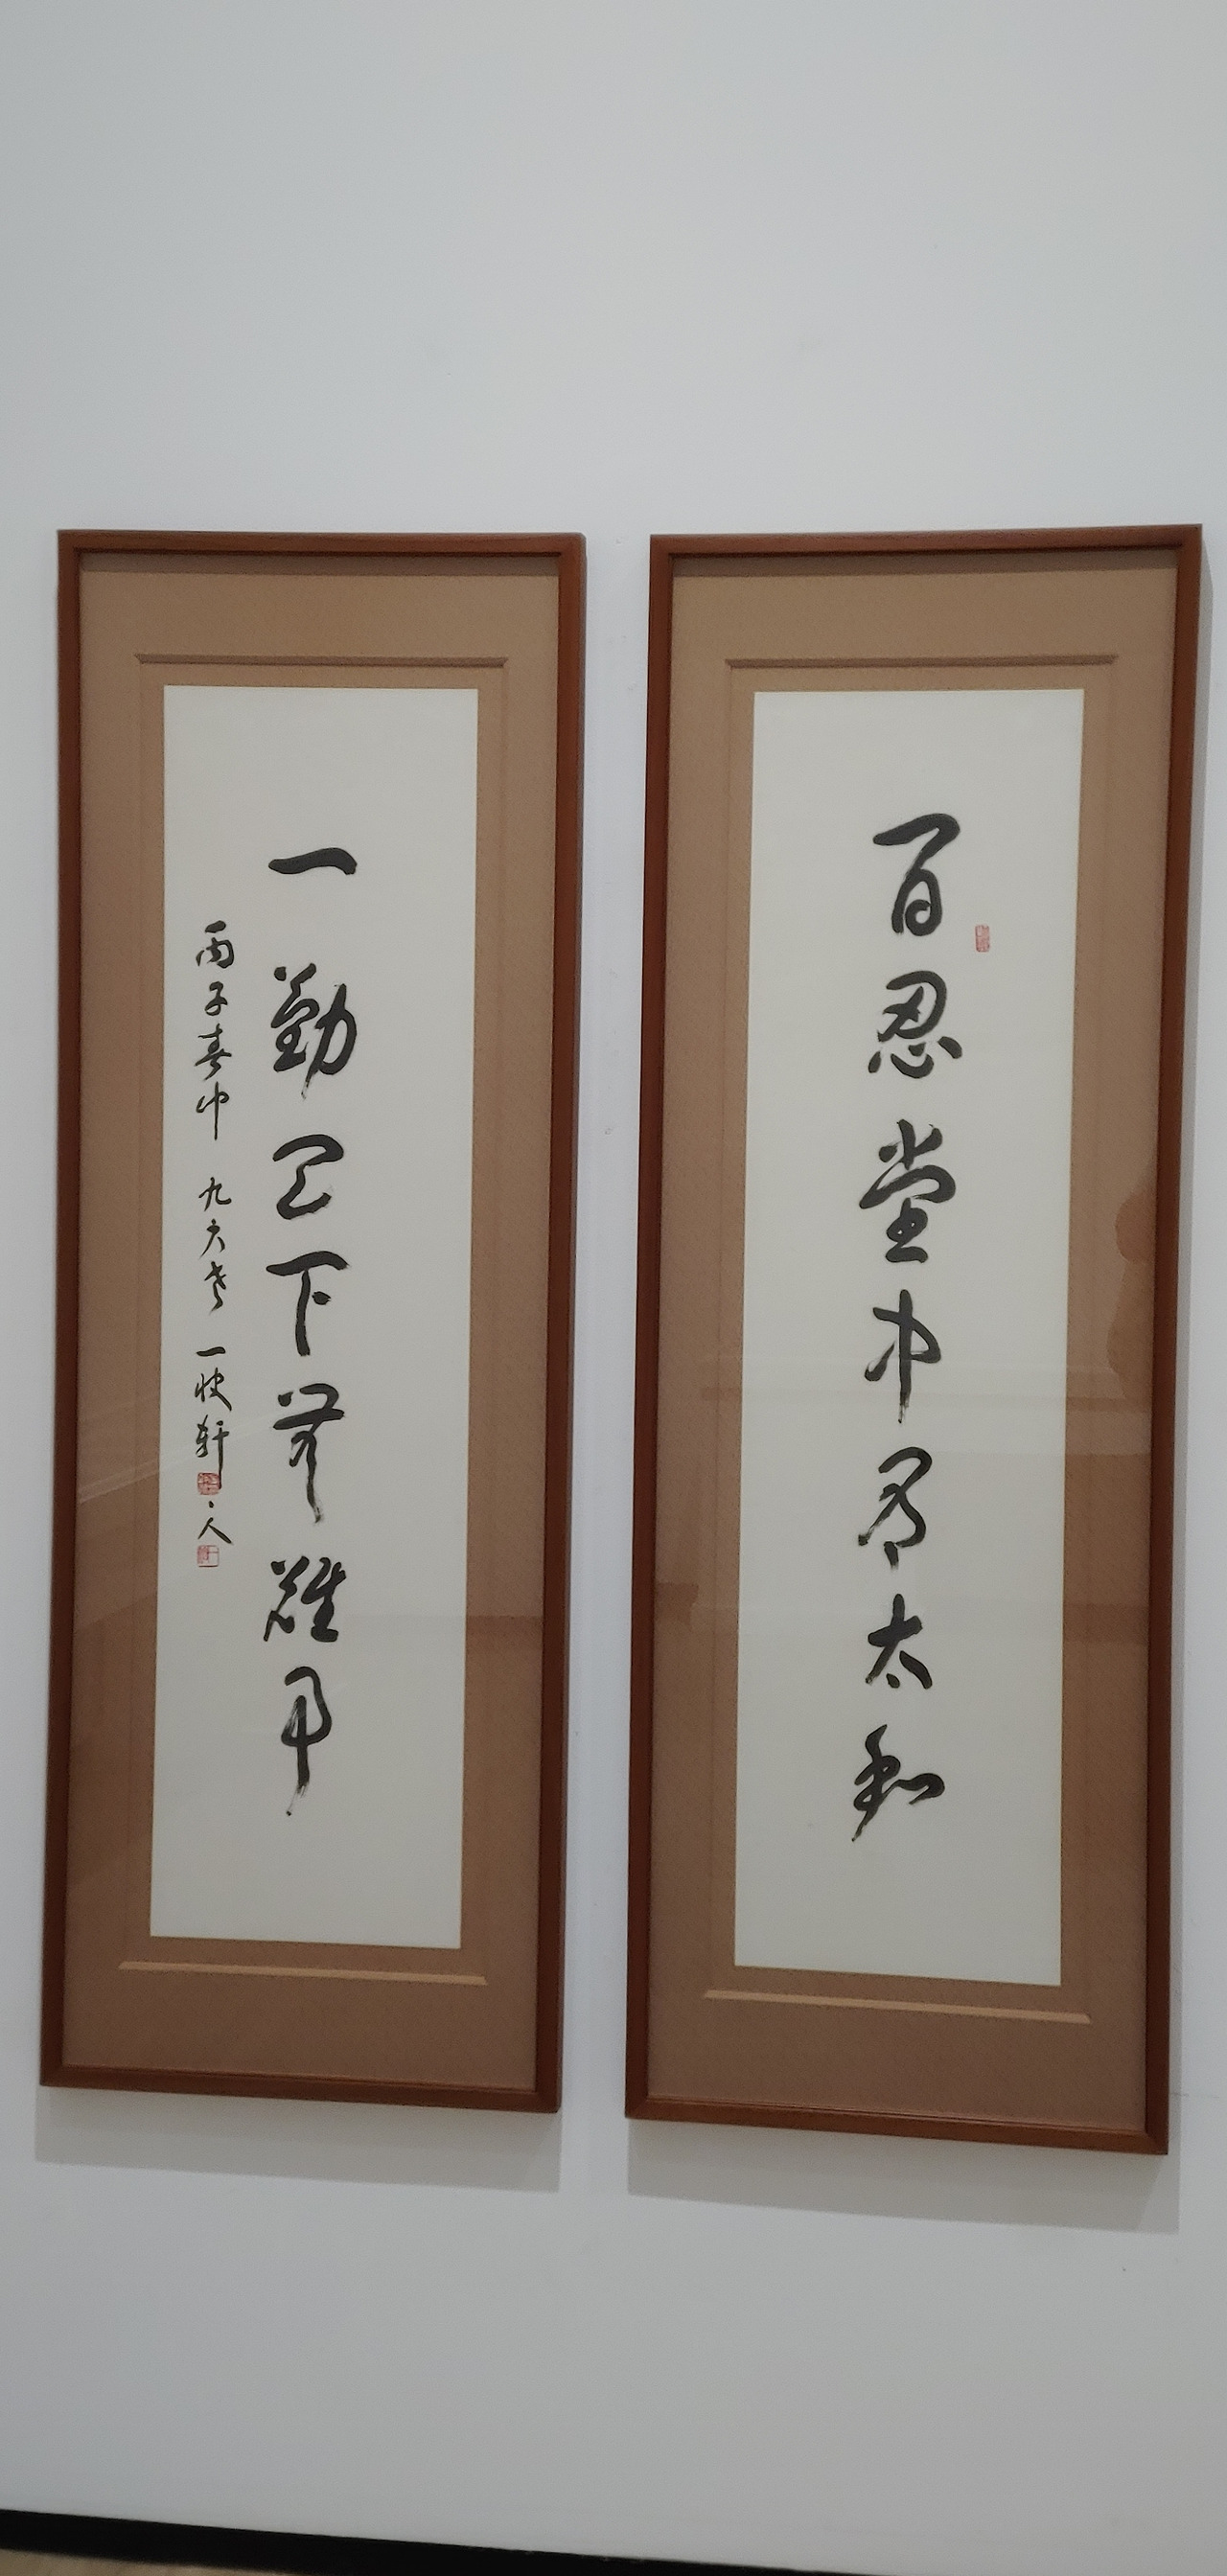 百忍堂中有太和
一勤天下無難事
丙子春中 九六老 一快軒 人